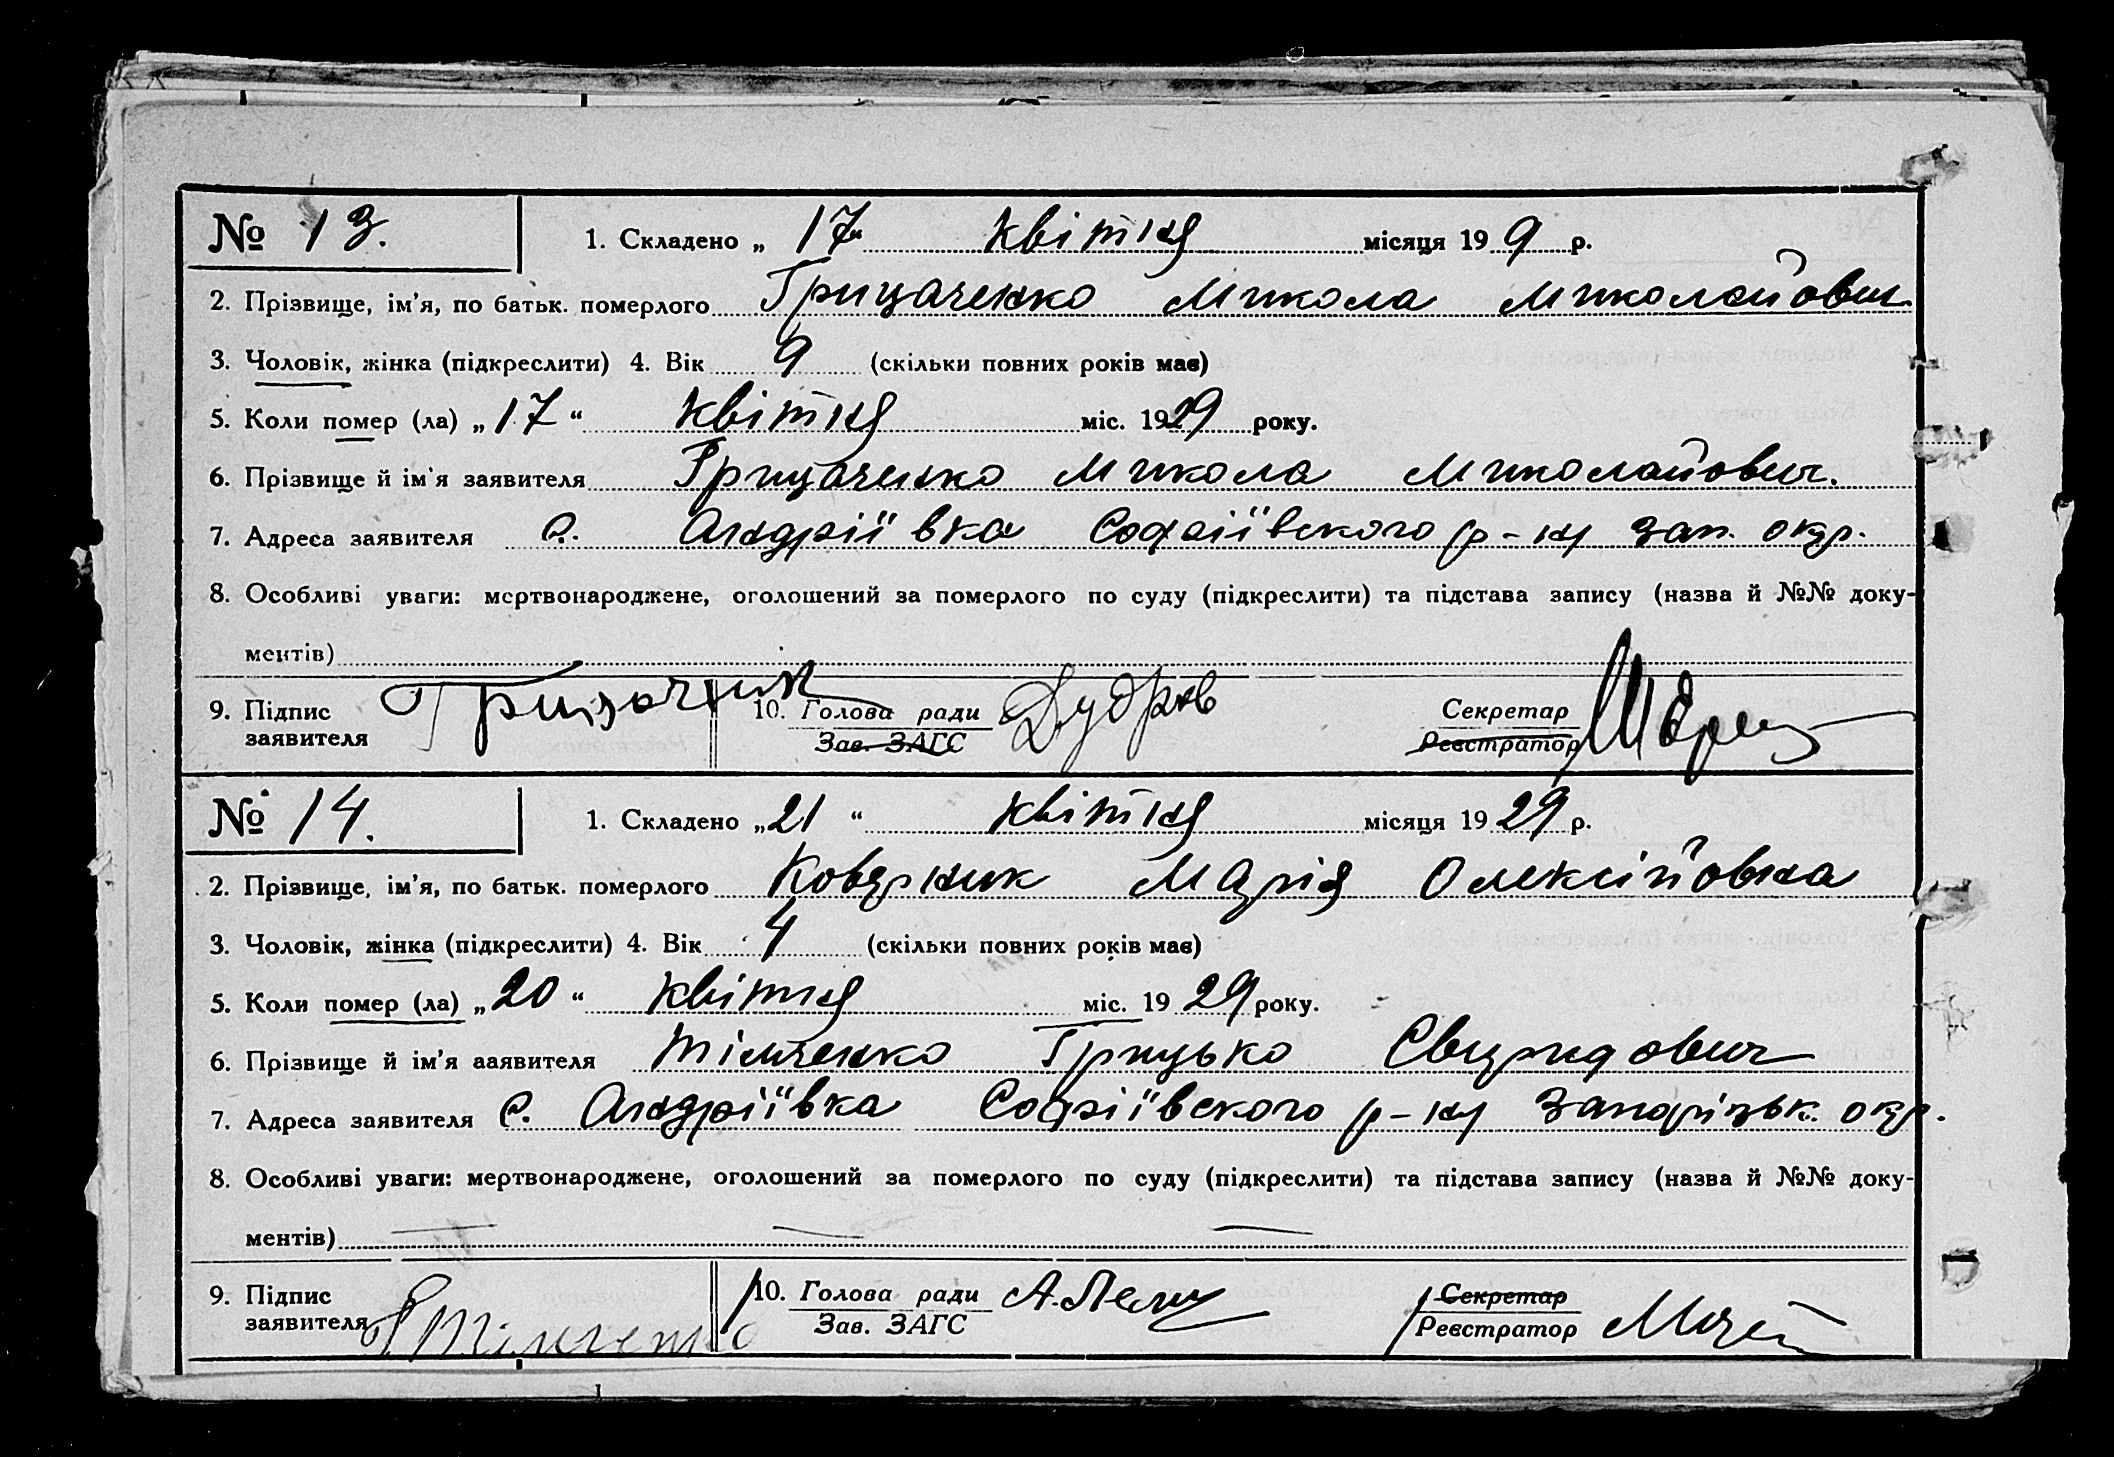 № 13.
1. Складено „ 17 “ квітня місяця 19 9 р.
2. Прізвище, ім'я, по батьк. померлого Грицаченко Микола Миколайович
3. Чоловік, жінка (підкреслити) 4. Вік 9 (скільки повних років має)
5. Коли помер (ла) „ 17 “ квітня міс. 1929 року.
6. Прізвище й ім'я заявителя Грицаченко Микола Миколайович.
7. Адреса заявителя с. Андріївка Софіївского р-ну Зап. окр.
8. Особливі уваги: мертвонароджене, оголошений за померлого по суду (підкреслити) та підстава запису (назва й №№ доку-
ментів)
9. Підпис заявителя 10. Голова ради Зав. ЗАГС Секретар Реєстратор
№ 14.
1. Складено „ 21 “ квітня місяця 19 29 р.
2. Прізвище, ім'я, по батьк. померлого Коверник Марія Олексіївна
3. Чоловік, жінка (підкреслити) 4. Вік 4 (скільки повних років має)
5. Коли помер (ла) „ 20 “ квітня міс. 19 29 року.
6. Прізвище й ім'я ааявителя Тімченко Грицько Свиридович
7. Адреса заявителя с. Андріївка Софіївского р-ну Запорізьк. окр.
8. Особливі уваги: мертвонароджене, оголошений за померлого по суду (підкреслити) та підстава запису (назва й №№ доку-
ментів)
9. Підпис заявителя Г Тімченко 10. Голова ради Зав. ЗАГС Секретар Реєстратор